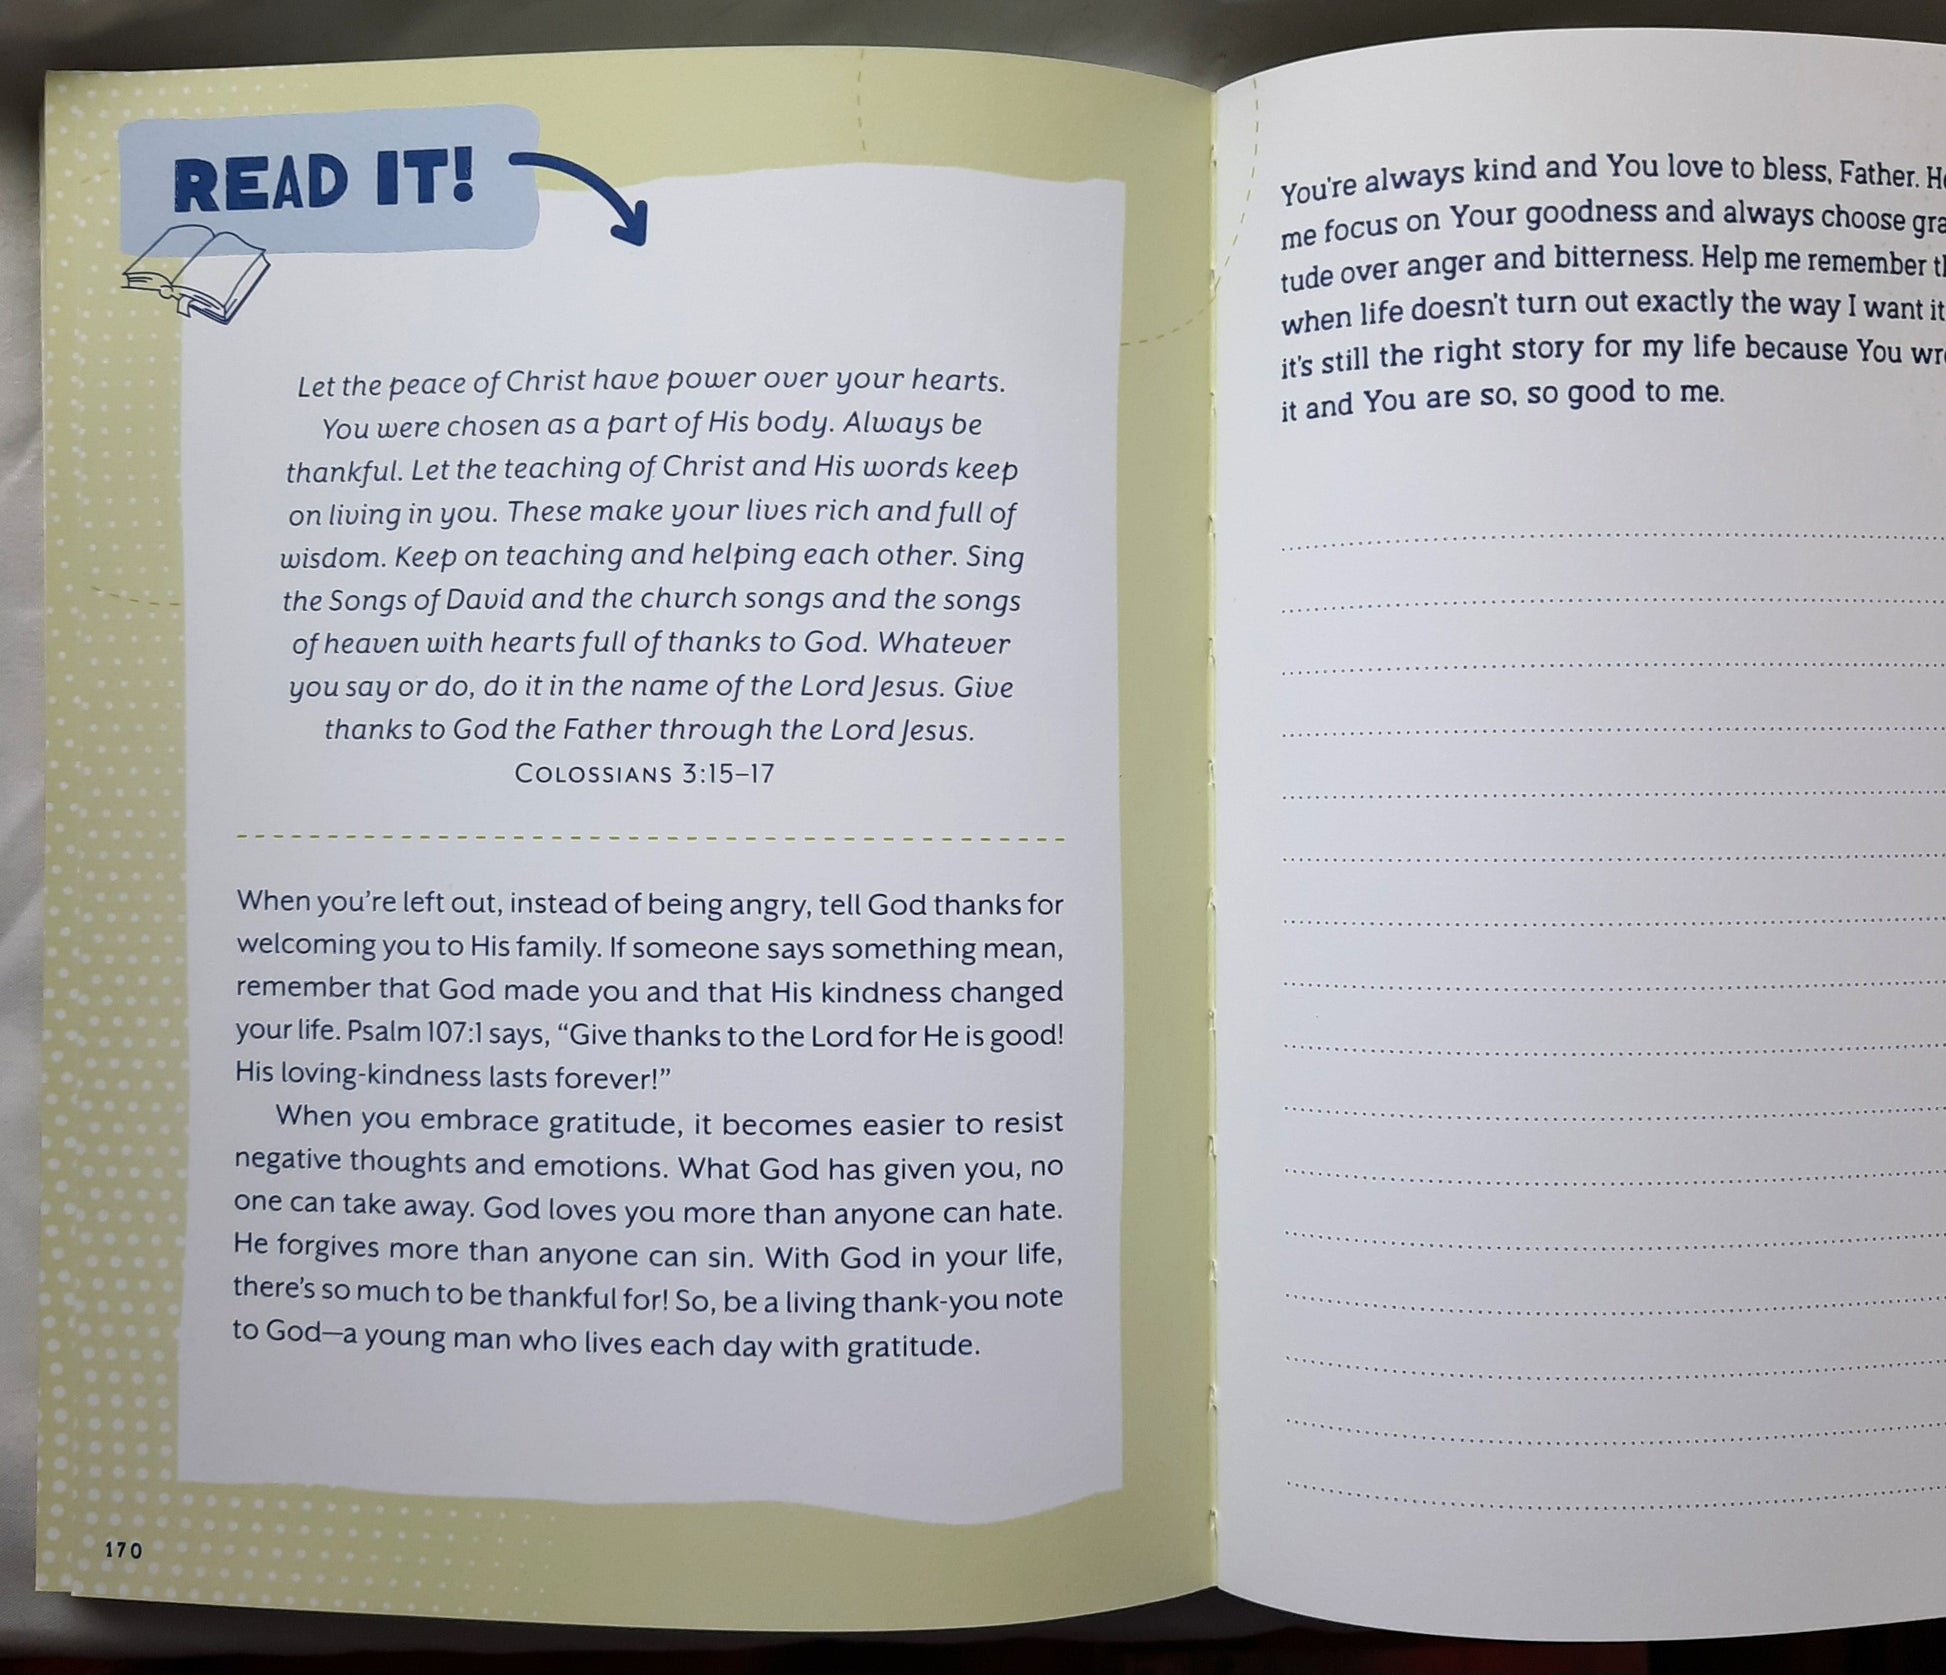 READ IT!
Let the peace of Christ have power over your hearts.
You were chosen as a part of His body. Always be
thankful. Let the teaching of Christ and His words keep
on living in you. These make your lives rich and full of
wisdom. Keep on teaching and helping each other. Sing
the Songs of David and the church songs and the songs
of heaven with hearts full of thanks to God. Whatever
you say or do, do it in the name of the Lord Jesus. Give
thanks to God the Father through the Lord Jesus.
COLOSSIANS 3:15–17
When you're left out, instead of being angry, tell God thanks for
welcoming you to His family. If someone says something mean,
remember that God made you and that His kindness changed
your life. Psalm 107:1 says, “Give thanks to the Lord for He is good!
His loving-kindness lasts forever!”
When you embrace gratitude, it becomes easier to resist
negative thoughts and emotions. What God has given you, no
one can take away. God loves you more than anyone can hate.
He forgives more than anyone can sin. With God in your life,
there's so much to be thankful for! So, be a living thank-you note
to God—a young man who lives each day with gratitude.
170
You're always kind and You love to bless, Father.
me focus on Your goodness and always choose gra
tude over anger and bitterness. Help me remember
when life doesn't turn out exactly the way I want it
it's still the right story for my life because You
it and You are so, so good to me.